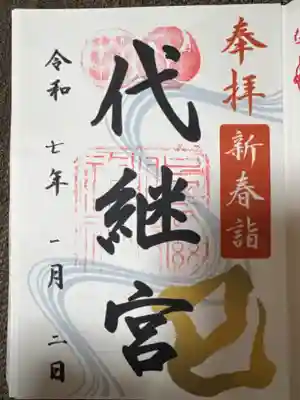 奉拝
新春詣
巳
代継宮
令和七年一月二日